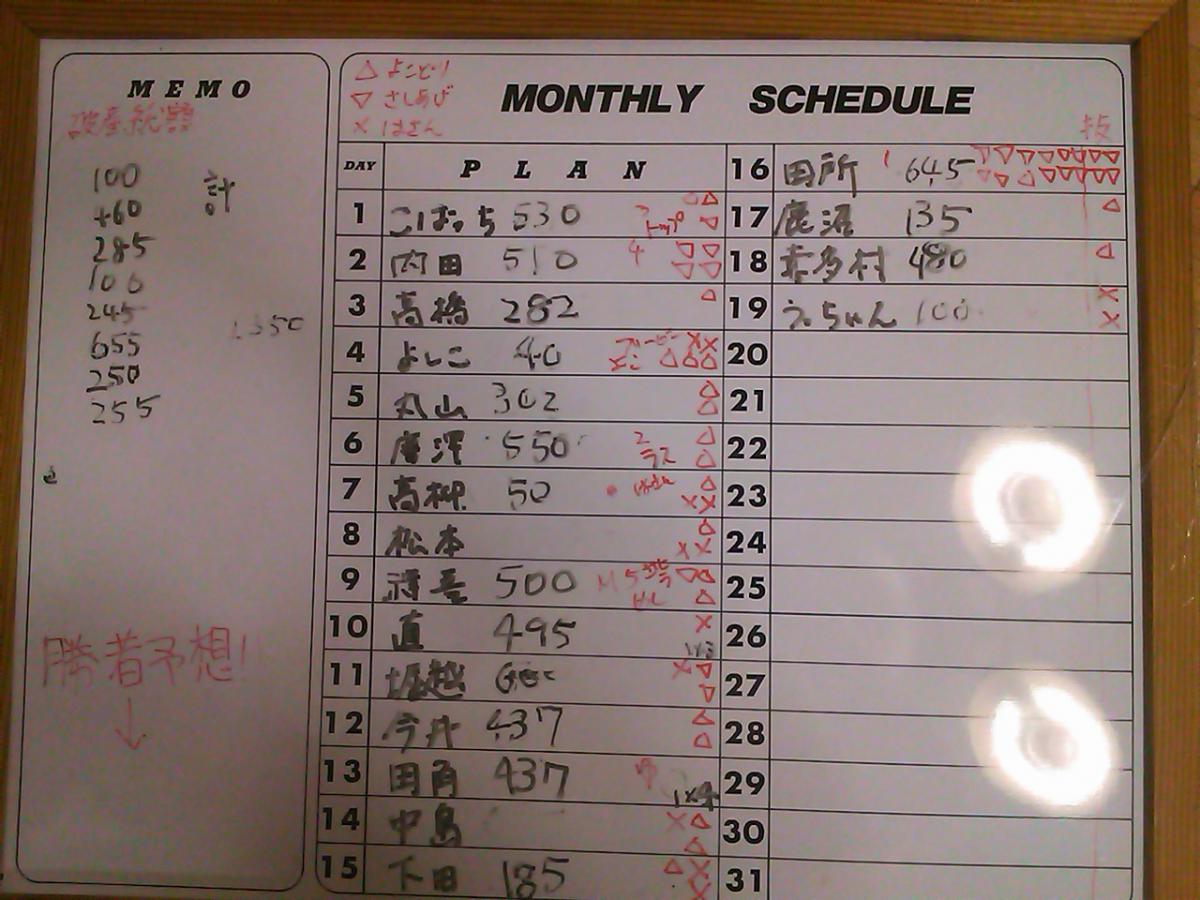 MEMO
破産総額
100
計
+60
285
100
245
1350
655
250
255
勝者予想!!
↓
△ よこどり
▽ さしあび
× はさん
MONTHLY SCHEDULE
DAY PLAN
1 こばっち 530 トップ
2 内田 510 4
3 高橋 282
4 よしこ 40
5 丸山 302
6 唐澤 550 2 ラス
7 高柳 50 はさん
8 松本
9 将吾 500
10 直 495
11 堀越
12 今井 437
13 田角 437 1×4
14 中島
15 下田 185
16 田所 645
17 鹿沼 135
18 喜多村 480
19 うちゃん 100
20
21
22
23
24
25
26
27
28
29
30
31